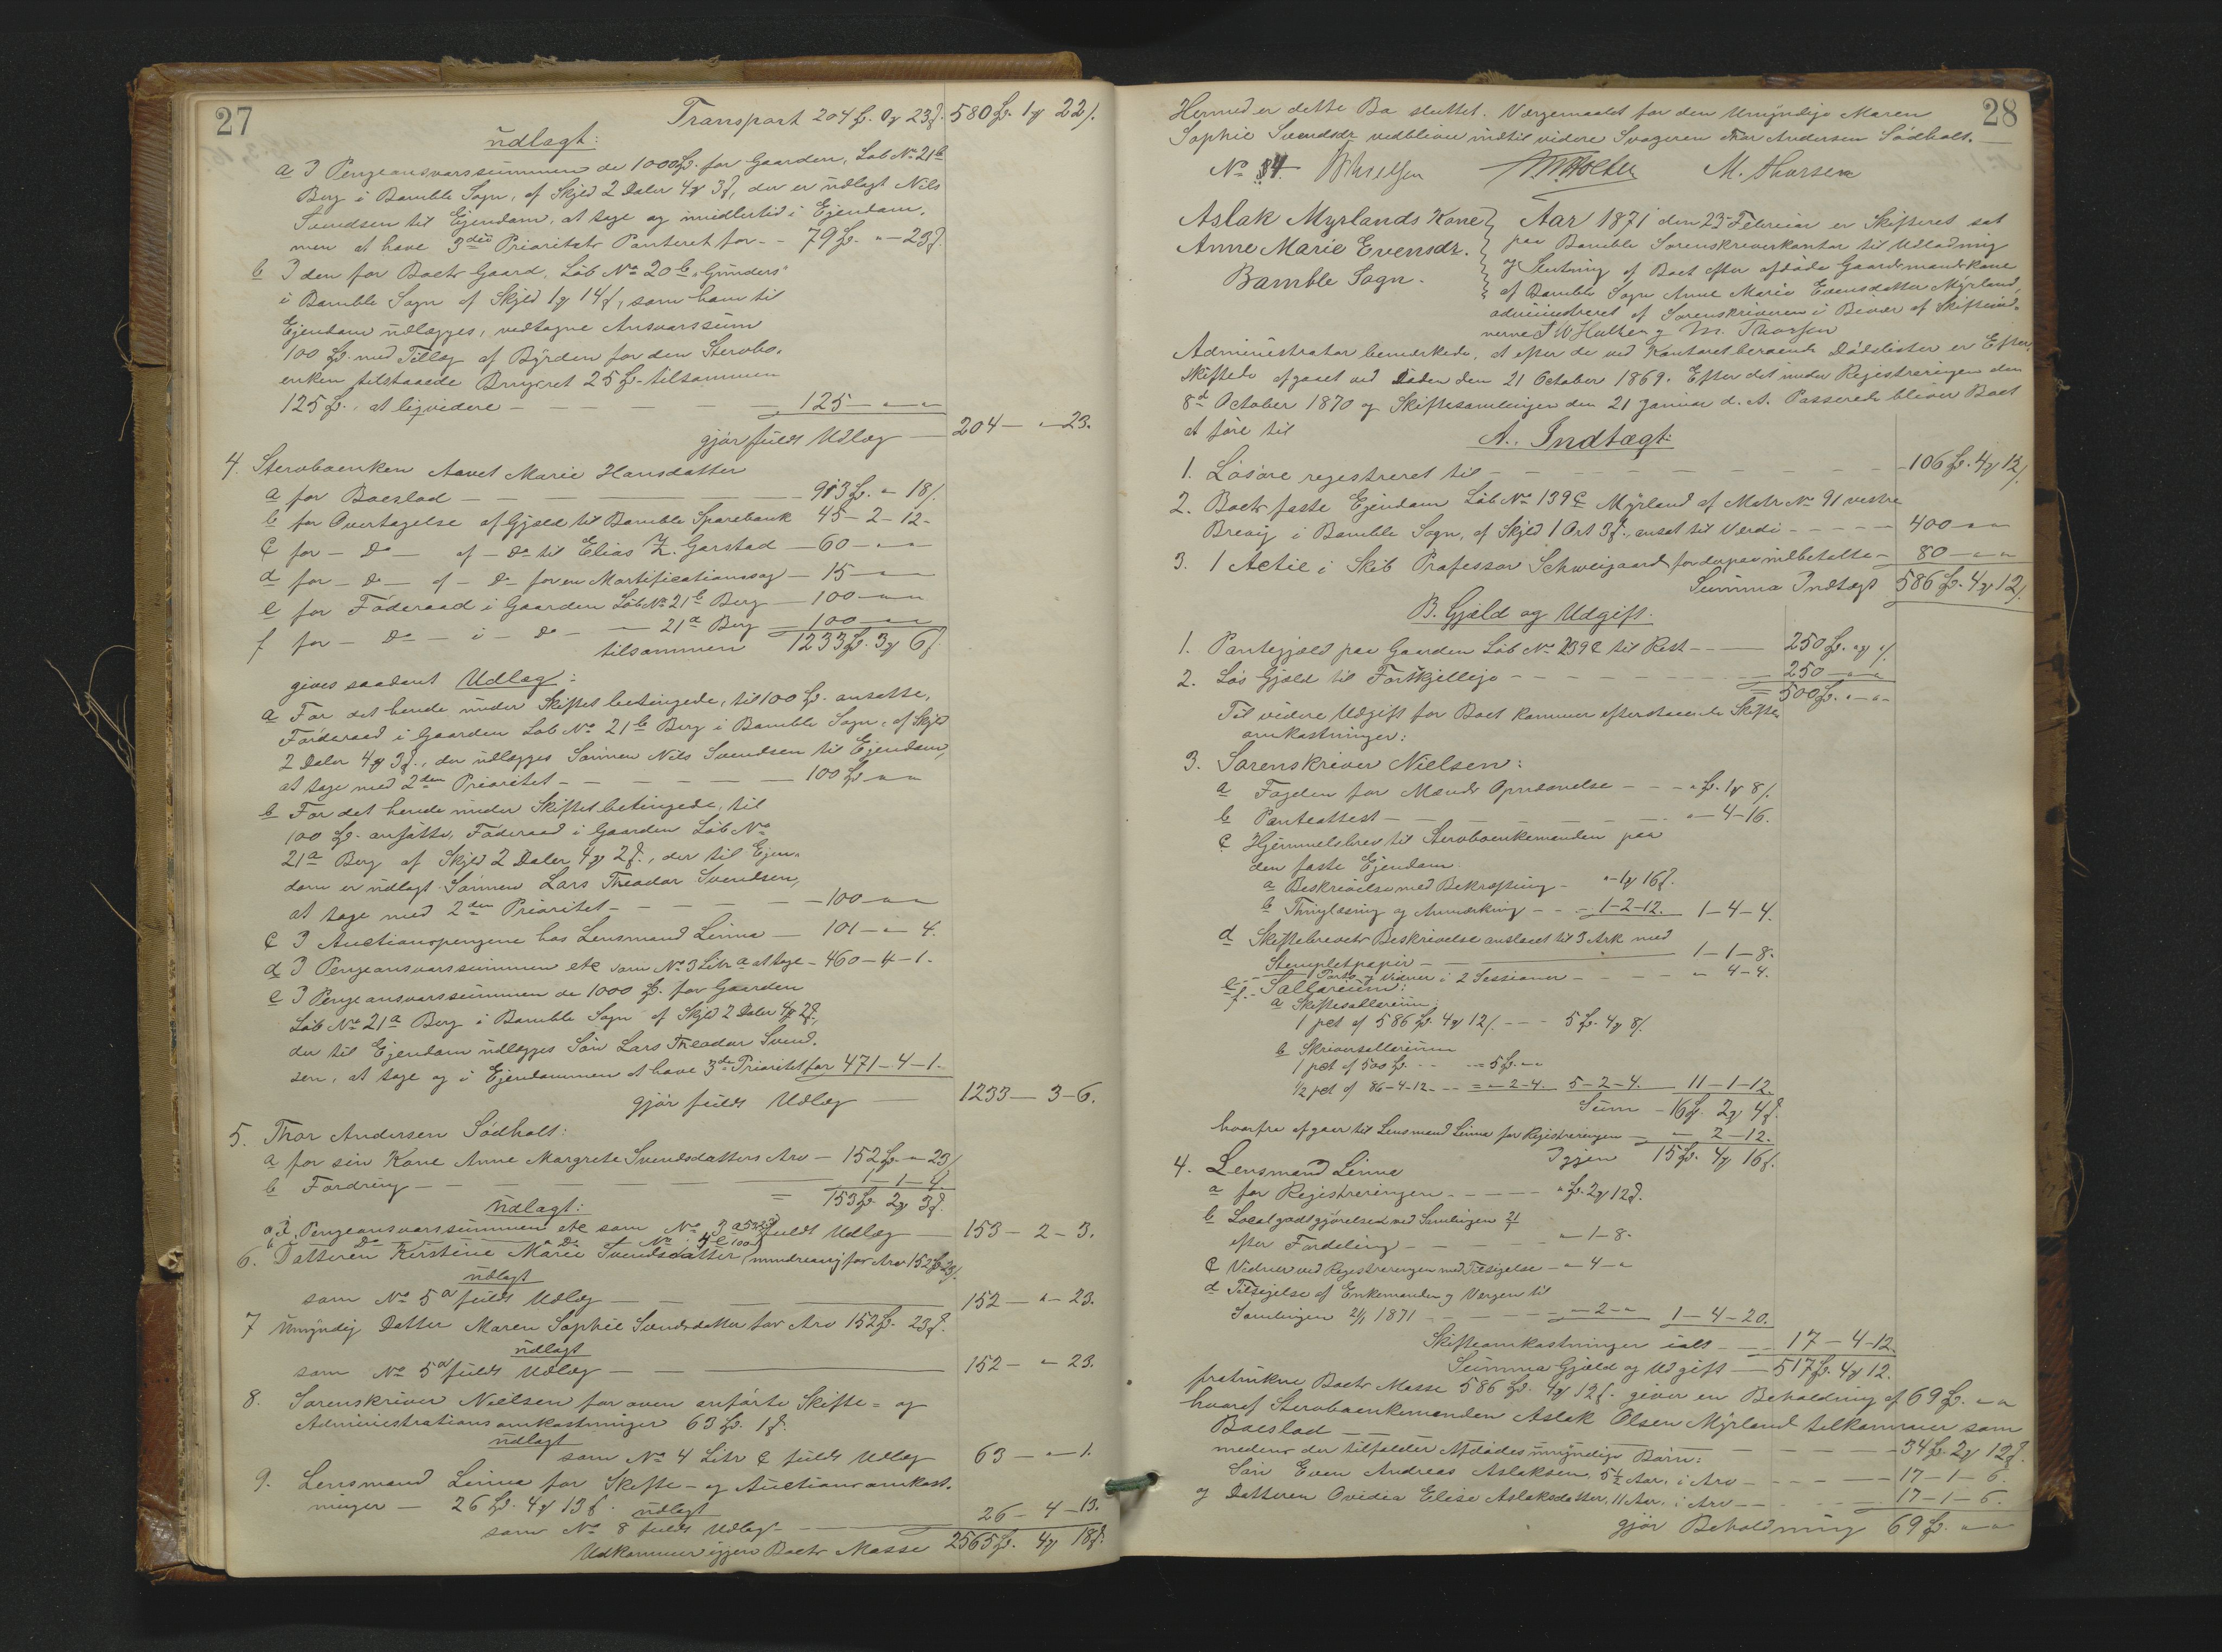 27
Transport 204 Sp. 0 ß 23 s. 580 Sp. 1 ß 22 s.
Udlagt:
a I Pengeansvarssummen de 1000 Sp. for Gaarden, Løb No 21b
Berg i Bamble Sogn, af Skjld 2 Daler 4 ß 3 s, der er udlagt Nils
Svendsen til Ejendom, at tage og imidlertid i Ejendom-
men at have 3die Prioritets Panteret for - - 79 Sp. " - 23 s.
b I den for Boets Gaard, Løb No 20b "Gunders"
i Bamble Sogn af Skjld 1 ß 14 s, som ham til
Ejendom udlægges, vedtagne Ansvarssum
100 Sp. med Tillæg af Byrden for den Stervbo-
enken tilstaaede Brugsret 25 Sp. tilsammen
125 Sp. at liqvidere - - - - 125 - " - "
gjør fuldt Udlæg - 204 - " - 23.
4. Stervboenken Aavet Marie Hansdatter
a for Boeslod - - - - 913 Sp. " - 18 s.
b for Overtagelse af Gjæld til Bamble Sparebank 45 - 2 - 12 -
c for - Do - af - Do til Elias Z. Garstad - 60 - " - "
d for - Do - af - Do for en Mortificationssag - 15 - " - "
e for Føderaad i Gaarden Løb No 21b Berg - 100 - " - "
f for - Do - i - Do - - 21a Berg - 100 - " - "
tilsammen 1233 Sp. 3 ß 6 s.
gives saadant Udlæg:
a For det hende under Skiftet betingede, til 100 Sp. ansatte,
Føderaad i Gaarden Løb No 21b Berg i Bamble Sogn, af Skjld
2 Daler 4 ß 3 s., der udlægges Sønnen Nils Svendsen til Ejendom,
at tage med 2den Prioritet - - - - 100 Sp. " - "
b For det hende under Skiftet betingede, til
100 Sp. ansatte, Føderaad i Gaarden Løb No
21a Berg af Skjld 2 Daler 4 ß 2 s., der til Ejen-
dom er udlagt Sønnen Lars Theodor Svendsen,
at tage med 2den Prioritet - - - - 100 - " - "
c I Auctionspengene hos Lensmand Linna - 101 - " - 4.
d I Pengeansvarssummen etc som No 3 Litr a at tage - 460 - 4 - 1 -
e I Pengeansvarssummen de 1000 Sp. for Gaarden
Løb No 21a Berg i Bamble Sogn af Skjld 2 Daler 4 ß 2 s.,
der til Ejendom udlægges Søn Lars Theodor Svend-
sen, at tage og i Ejendommen at have 3die Prioritet for 471 - 4 - 1 -
gjør fuldt Udlæg - 1233 - 3 - 6.
5. Thor Andersen Sødholt:
a for sin Kone Anne Margrete Svendsdatters Arv - 152 Sp. " - 23 s.
b Fordring - - - - 1 - 1 - 4.
= 153 Sp. 2 ß 3 s.
Udlagt:
a I Pengeansvarssummen etc som No 3 a fuldt Udlæg - 153 - 2 - 3.
b Do - Do No 4 e
6. Datteren Kirstine Marie Svendsdatter (mindreaarig) for Arv 152 Sp. 23 s.
udlagt
som No 5a fuldt Udlæg - - - 152 - " - 23.
7 Umyndig Datter Maren Sophie Svendsdatter for Arv 152 Sp. 23 s.
udlagt
som No 5a fuldt Udlæg - - - 152 - " - 23.
8. Sorenskriver Nielsen for oven anførte Skifte- og
Administrationsomkostninger 63 Sp. 1 s.
udlagt
som No 4 Litr c fuldt Udlæg 63 - " - 1.
9. Lensmand Linna for Skifte- og Auctionsomkost-
ninger - 26 Sp. 4 ß 13 s. udlagt
som No 8 fuldt Udlæg - 26 - 4 - 13.
Udkommer igjen Boets Masse 2565 Sp. 4 ß 18 s.
28
Hermed er dette Bo sluttet. Værgemaalet for den Umyndige Maren
Sophie Svendsdr vedbliver indtil videre Svogeren Thor Andersen Sødholt. -
No 34 Nielsen Holter M. Thorsen
Aslak Myrlands Kone
Anne Marie Evensdr.
Bamble Sogn.
Aar 1871 den 23 Februar er Skifteret sat
paa Bamble Sorenskriverkontor til Udlodning
og Slutning af Boet efter afdøde Gaardmandskone
af Bamble Sogn Anne Marie Evensdatter Myrland,
administreret af Sorenskriveren i Bivær af Skiftevid-
nerne J W Holter og M. Thorsen
Administrator bemærkede, at efter de ved Kontoret beroende Dødslister er Efter-
skiftede afgaaet ved Døden den 21 October 1869. Efter det under Registreringen den
8d October 1870 og Skiftesamlingen den 21 Januar d. A. Passerede bliver Boet
at føre til
A. Indtægt:
1. Løsøre registreret til - - - - 106 Sp. 4 ß 12 s.
2. Boets faste Ejendom Løb No 139c Myrland af Matr No 91 vestre
Brevig i Bamble Sogn, af Skjld 1 Ort 3 s., ansat til Værdi - - - 400 - " - "
3. 1 Actie i Skib Professor Schweigaard for derpaa indbetalte - 80 - " - "
Summa Indtægt 586 Sp. 4 ß 12 s.
B. Gjæld og Udgift.
1. Pantegjæld paa Gaarden Løb No 139c til Rest - - - 250 Sp. " ß " s.
2. Løs Gjæld til Forskjellige - - - - 250 - " - "
= 500 Sp. " - " -
Til videre Udgift for Boet kommer efterstaaende Skifte-
omkostninger:
3. Sorenskriver Nielsen:
a Fogden for Mænds Opnævnelse - - - " Sp. 1 ß 8 s.
b Panteattest - - - - " - 4 - 16.
c Hjemmelsbrev til Stervboenkemanden paa
den faste Ejendom
a Beskrivelse med Bekræftning - " - 1 ß 16 s.
b Thinglæsning og Anmærkning - - 1 - 2 - 12. 1 - 4 - 4.
d Skiftebrevets Beskrivelse anslaaet til 3 Ark med
Stemplet papir - - - 1 - 1 - 8.
e - Porto og Vidner i 2 Sessioner - - - " - 4 - 4.
f - Sallarium:
a Skiftesallarium:
1 pct af 586 Sp. 4 ß 12 s. - - - 5 Sp. 4 ß 8 s.
b Skriversallarium
1 pct af 500 Sp. - - = 5 Sp. " - "
1/2 pct af 86 - 4 - 12 - - = " - 2 - 4. 5 - 2 - 4. 11 - 1 - 12.
Sum - 16 Sp. 2 ß 4 s.
hvorfra afgaar til Lensmand Linna for Registreringen - " - 2 - 12.
Igjen 15 Sp. 4 ß 16 s.
4. Lensmand Linna
a for Registreringen - - - - " Sp. 2 ß 12 s.
b Localgodtgjørelsen ved Samlingen 21/1
efter Fordeling - - - - " - 1 - 8 -
c Vidner ved Registreringen med Tilsigelse - " - 4 - "
d Tilsigelse af Enkemanden og Værgen til
Samlingen 21/1 1871 - - - - " - 2 - " 1 - 4 - 20.
Skifteomkostninger ialt - - - 17 - 4 - 12.
Summa Gjæld og Udgift - 517 Sp. 4 ß 12.
fratrukne Boets Masse 586 Sp. 4 ß 12 s. giver en Beholdning af 69 Sp. " - "
hvoraf Stervboenkemanden Aslak Olsen Myrland tilkommer som
Boeslod - - - - 34 Sp. 2 ß 12 s.
medens der tilfalder Afdødes umyndige Børn:
Søn Even Andreas Aslaksen, 5 1/2 Aar, i Arv - - - 17 - 1 - 6.
og Datteren Ovidia Elise Aslaksdatter, 11 Aar, i Arv - - - 17 - 1 - 6.
gjør Beholdning 69 Sp. " - "